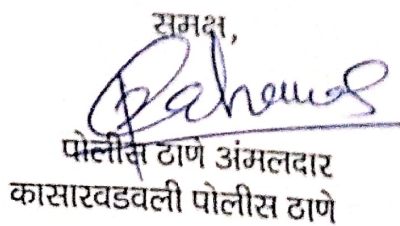 समक्ष,
पोलीस ठाणे अंमलदार
कासारवडवली पोलीस ठाणे